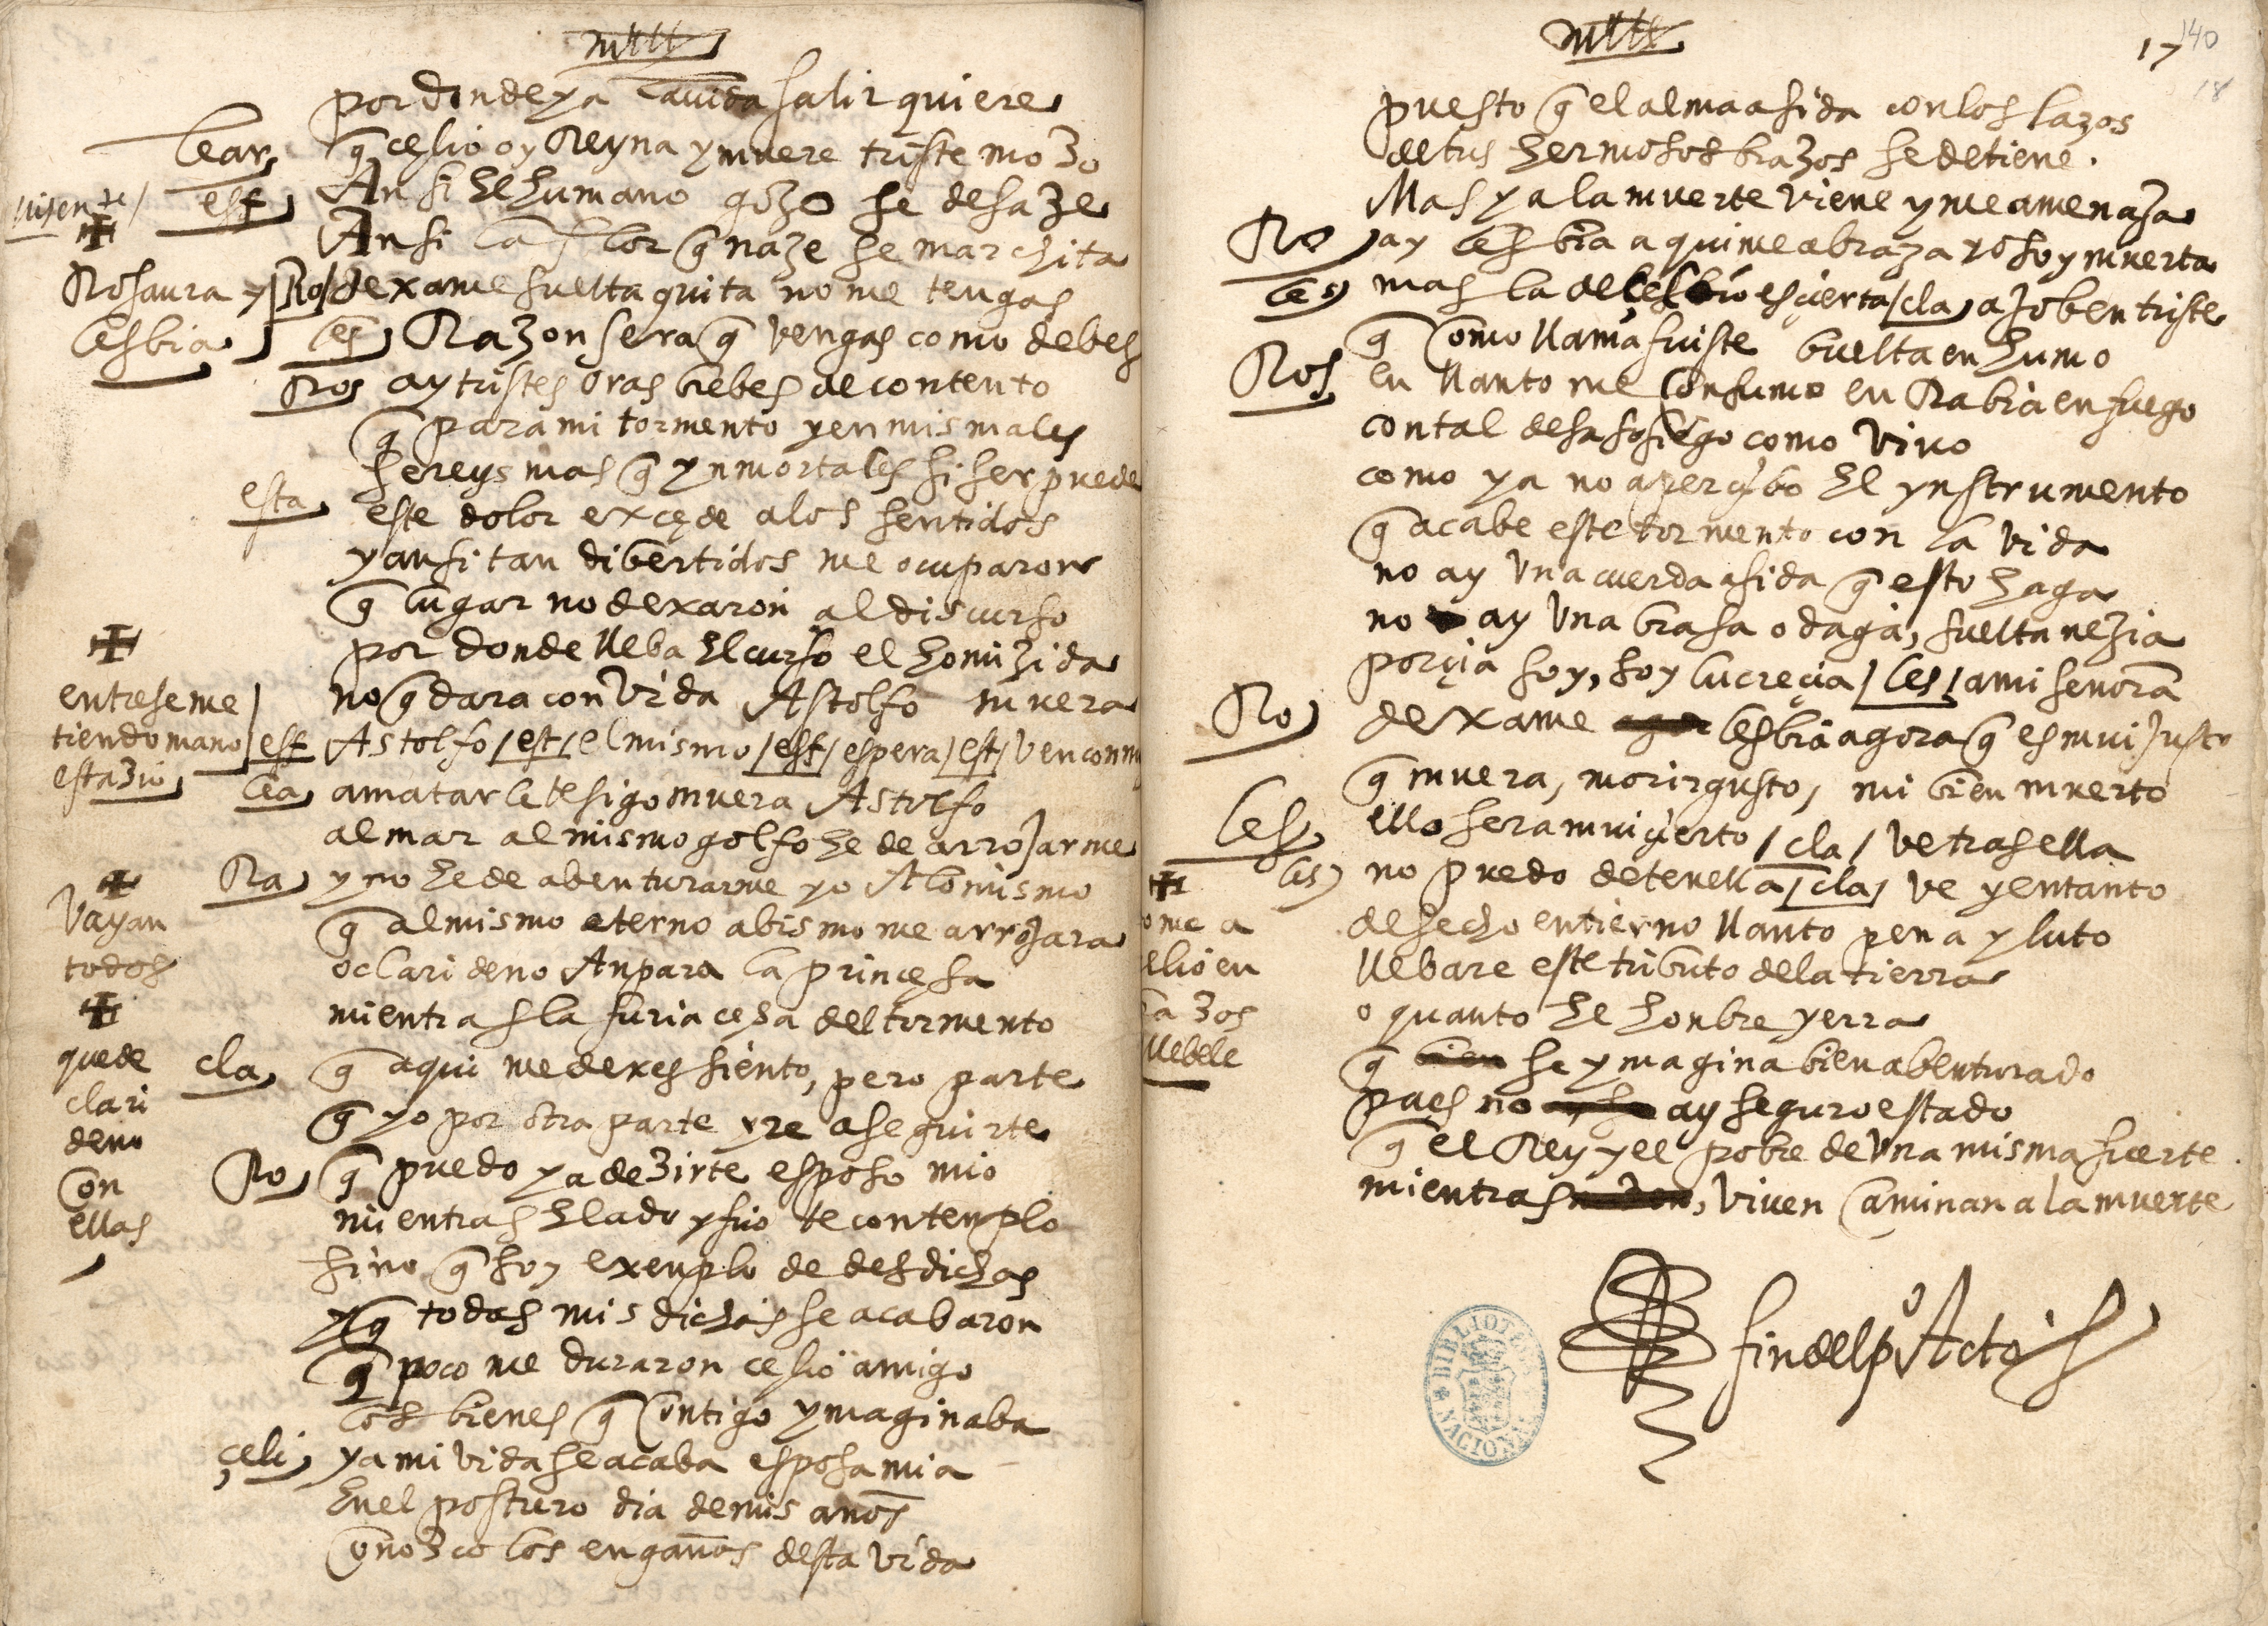 por donde ya la vida salir quiere
lear
q̃ celio oy Reyna y muere triste mozo
esf
Ansi el humano gozo se desaze
Ansi la flor q̃ naze se marchita
Rosaura y Lesbia
Ro / dexame suelta quita no me tengas
les Razon sera q̃ vengas como debes
Ros ay tristes oras brebes de contento
q̃ para mi tormento y en mis males
sereys mas q̃ ynmortales si ser puede
esta este dolor exçede a los sentidos
y ansi tan dibertidos me ocuparon
q̃ lugar no dexaron al discurso
por donde lleba el curso el homizida
no q̃dara con vida Astolfo muera
entrese metiendo mano estazio
esf Astolfo / est / el mismo / esf / espera / est / ven conmi
lea a matarle te sigo muera Astolfo
al mar al mismo golfo he de arrojarme
Ra y no he de abenturarme yo A lo mismo
q̃ al mismo eterno abismo me arrojara
vayan todos
o clarideno Anpara la princesa
mientras la furia cesa del tormento
quede clarideno con ellas
cla q̃ aqui me dexes siento, pero parte
q̃ yo por otra parte yre a seguirte
Ro q̃ puedo ya dezirte esposo mio
mientras elado y frio te contemplo
sino q̃ soy exenplo de desdichas
y q̃ todas mis dichas se acabaron
q̃ poco me duraron celio amigo
los bienes q̃ contigo ymaginaba
çeli ya mi vida se acaba esposa mia
en el postrero dia de mis anos
conozco los engaños desta vida
17
140
18
puesto q̃ el alma asida con los lazos
de tus hermosos brazos se detiene.
Mas ya la muerte viene y me amenaza
Ro ay lesbia aqui me abraza yo soy muerta
les mas la de çelio es çierta / cla a joben triste
q̃ como llama fuiste buelta en humo
Ros en llanto me consumo en Rabia en fuego
con tal desasosiego como vivo
como ya no aperçibo el ynstrumento
q̃ acabe este tormento con la vida
no ay una cuerda asida q̃ esto haga
no ay una brasa o daga, suelta nezia
porçia soy, soy lucreçia / les / a mi senora
Ro dexame lesbia agora q̃ es mui justo
q̃ muera, morir gusto, mi bien muerto
les ello sera mui çierto / cla / ve tras ella
les no puedo detenella / cla / ve y entanto
desecho en tierno llanto pena y luto
llebare este tributo de la tierra
o quanto el honbre yerra
q̃ se ymagina bien abenturado
pues no ay seguro estado
q̃ el Rey y el pobre de una misma suerte
mientras viven caminan a la muerte
fin del pº Acto
BIBLIOTECA NACIONAL